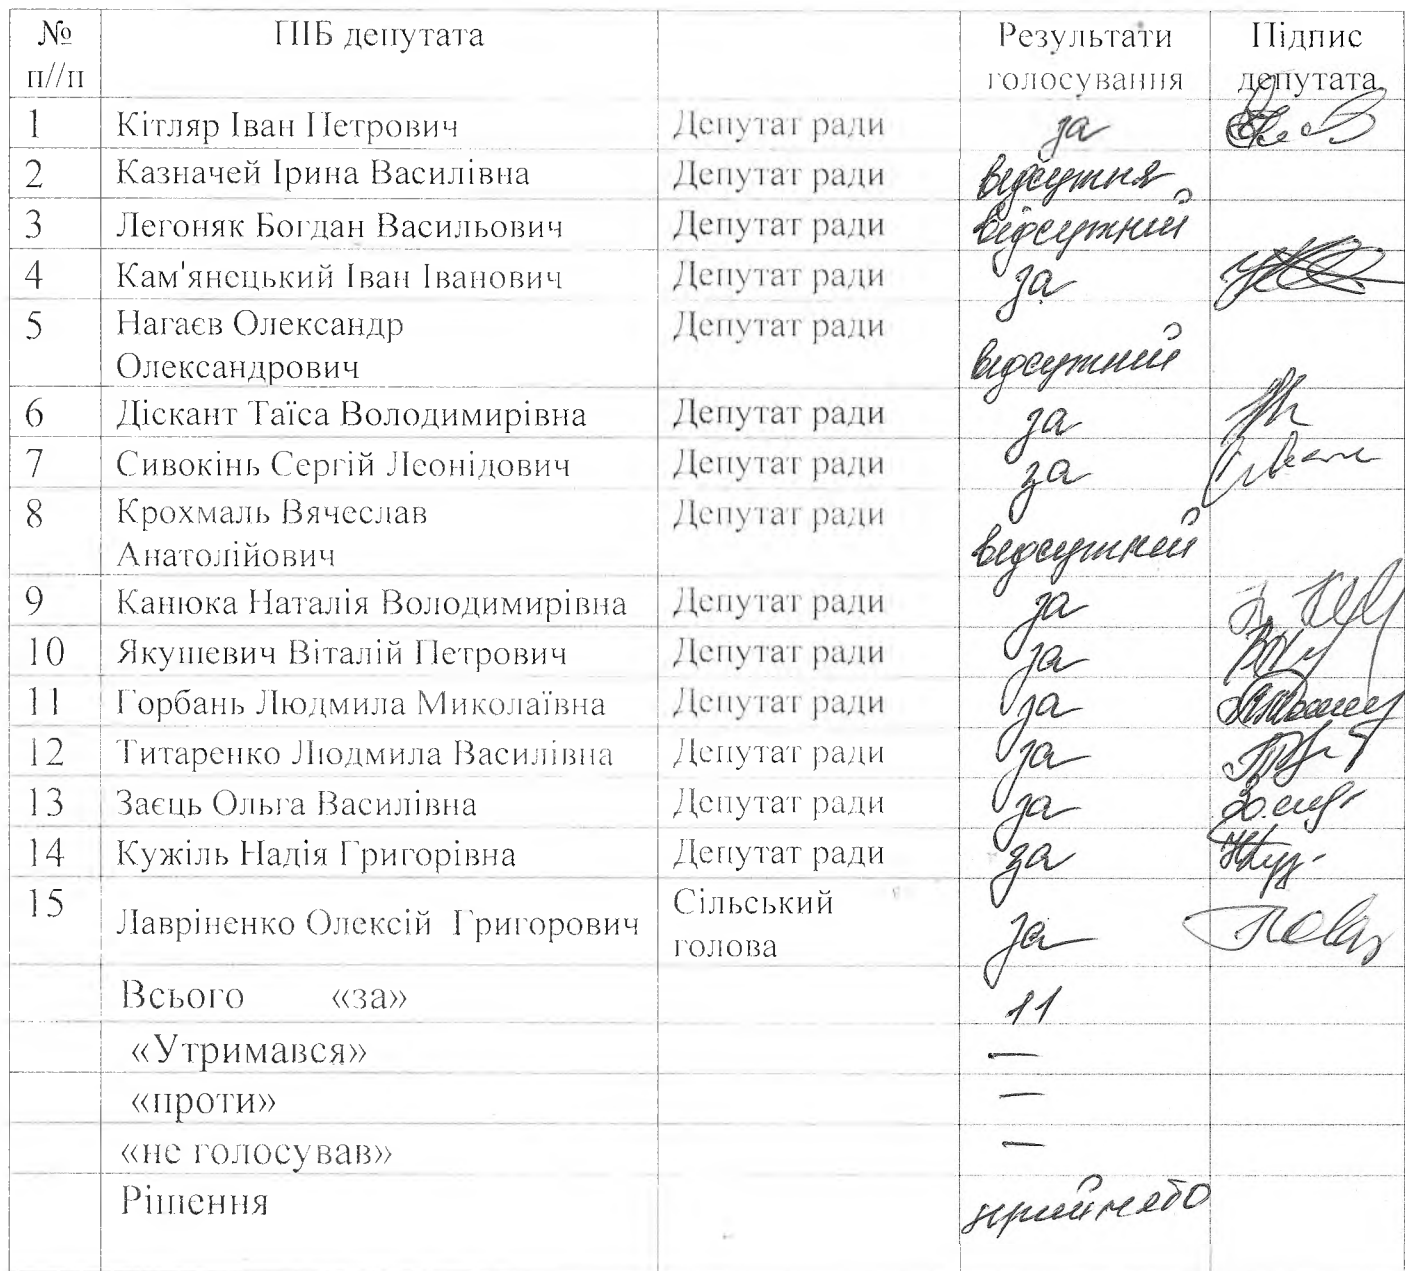 № ПІБ депутата Результати Підпис
п//п голосування депутата
1 Кітляр Іван Петрович Депутат ради за
2 Казначей Ірина Василівна Депутат ради відсутня
3 Легоняк Богдан Васильович Депутат ради відсутній
4 Кам'янецький Іван Іванович Депутат ради за
5 Нагаєв Олександр Депутат ради
Олександрович відсутній
6 Діскант Таїса Володимирівна Депутат ради за
7 Сивокінь Сергій Леонідович Депутат ради за
8 Крохмаль Вячеслав Депутат ради
Анатолійович відсутній
9 Канюка Наталія Володимирівна Депутат ради за
10 Якушевич Віталій Петрович Депутат ради за
11 Горбань Людмила Миколаївна Депутат ради за
12 Титаренко Людмила Василівна Депутат ради за
13 Заєць Ольга Василівна Депутат ради за
14 Кужіль Надія Григорівна Депутат ради за
15 Лавріненко Олексій Григорович Сільський
голова за
Всього «за» 11
«Утримався» —
«проти» —
«не голосував» —
Рішення прийнято